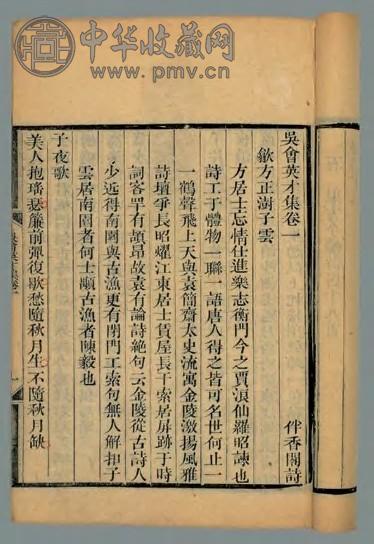 中华收藏网
www.pmv.cn
吳會英才集卷一
伴香閣詩
歙方正澍子雲
方居士忘情仕進樂志衡門今之賈浪仙羅昭諫也
詩工于體物一聯一語唐人得之皆可名世何止一
一鶴聲飛上天與袁簡齋太史流寓金陵激揚風雅
詩壇爭長昭耀江東居士賃屋長干索居屏跡于時
詞客罕有頡昂故袁有論詩絕句云金陵從古詩人
少近得南岡與古漁更有閉門工索句無人解扣子
雲居南岡者何士顒古漁者陳毅也
子夜歌
美人抱瑤瑟簾前彈復歌愁隨秋月生不隨秋月缺